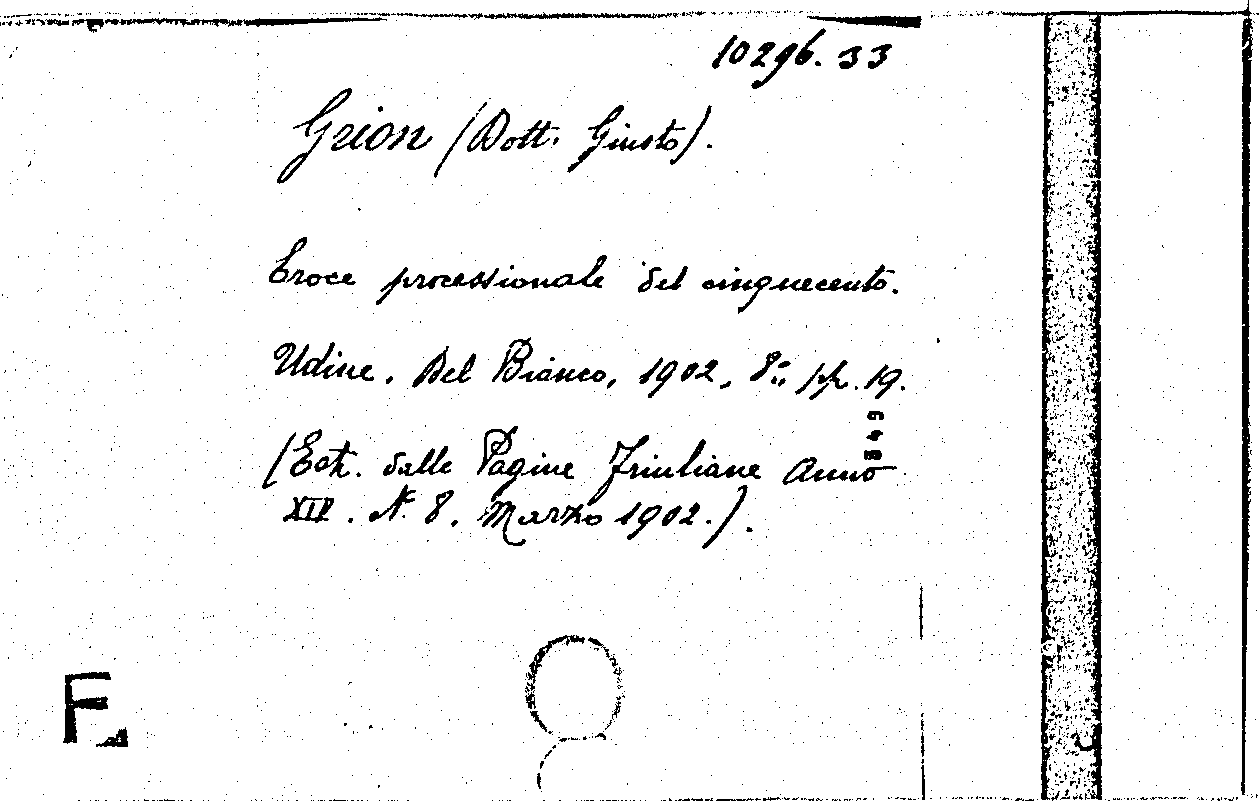 10296.33
Grion (Dott. Giusto).
Croce processionale del cinquecento.
Udine. Del Bianco, 1902, 8º, pp. 19.
349
(Estr. dalle Pagine Friuliane Anno
XIV. N. 8. Marzo 1902.).
F